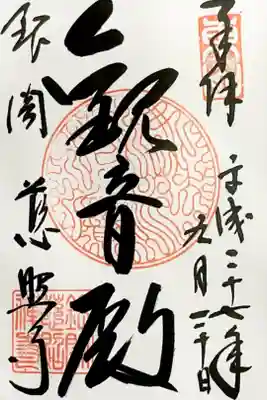 奉拝
平成二十七年
九月二十日
觀音殿
銀閣 慈照寺